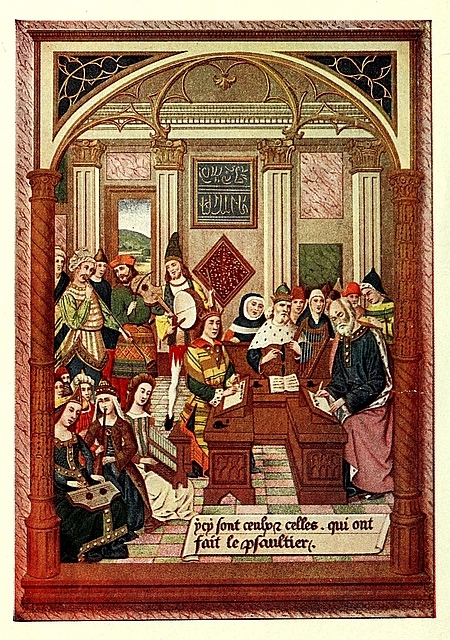 ycy sont ceulx ⁊ celles . qui ont
fait le psaultier.